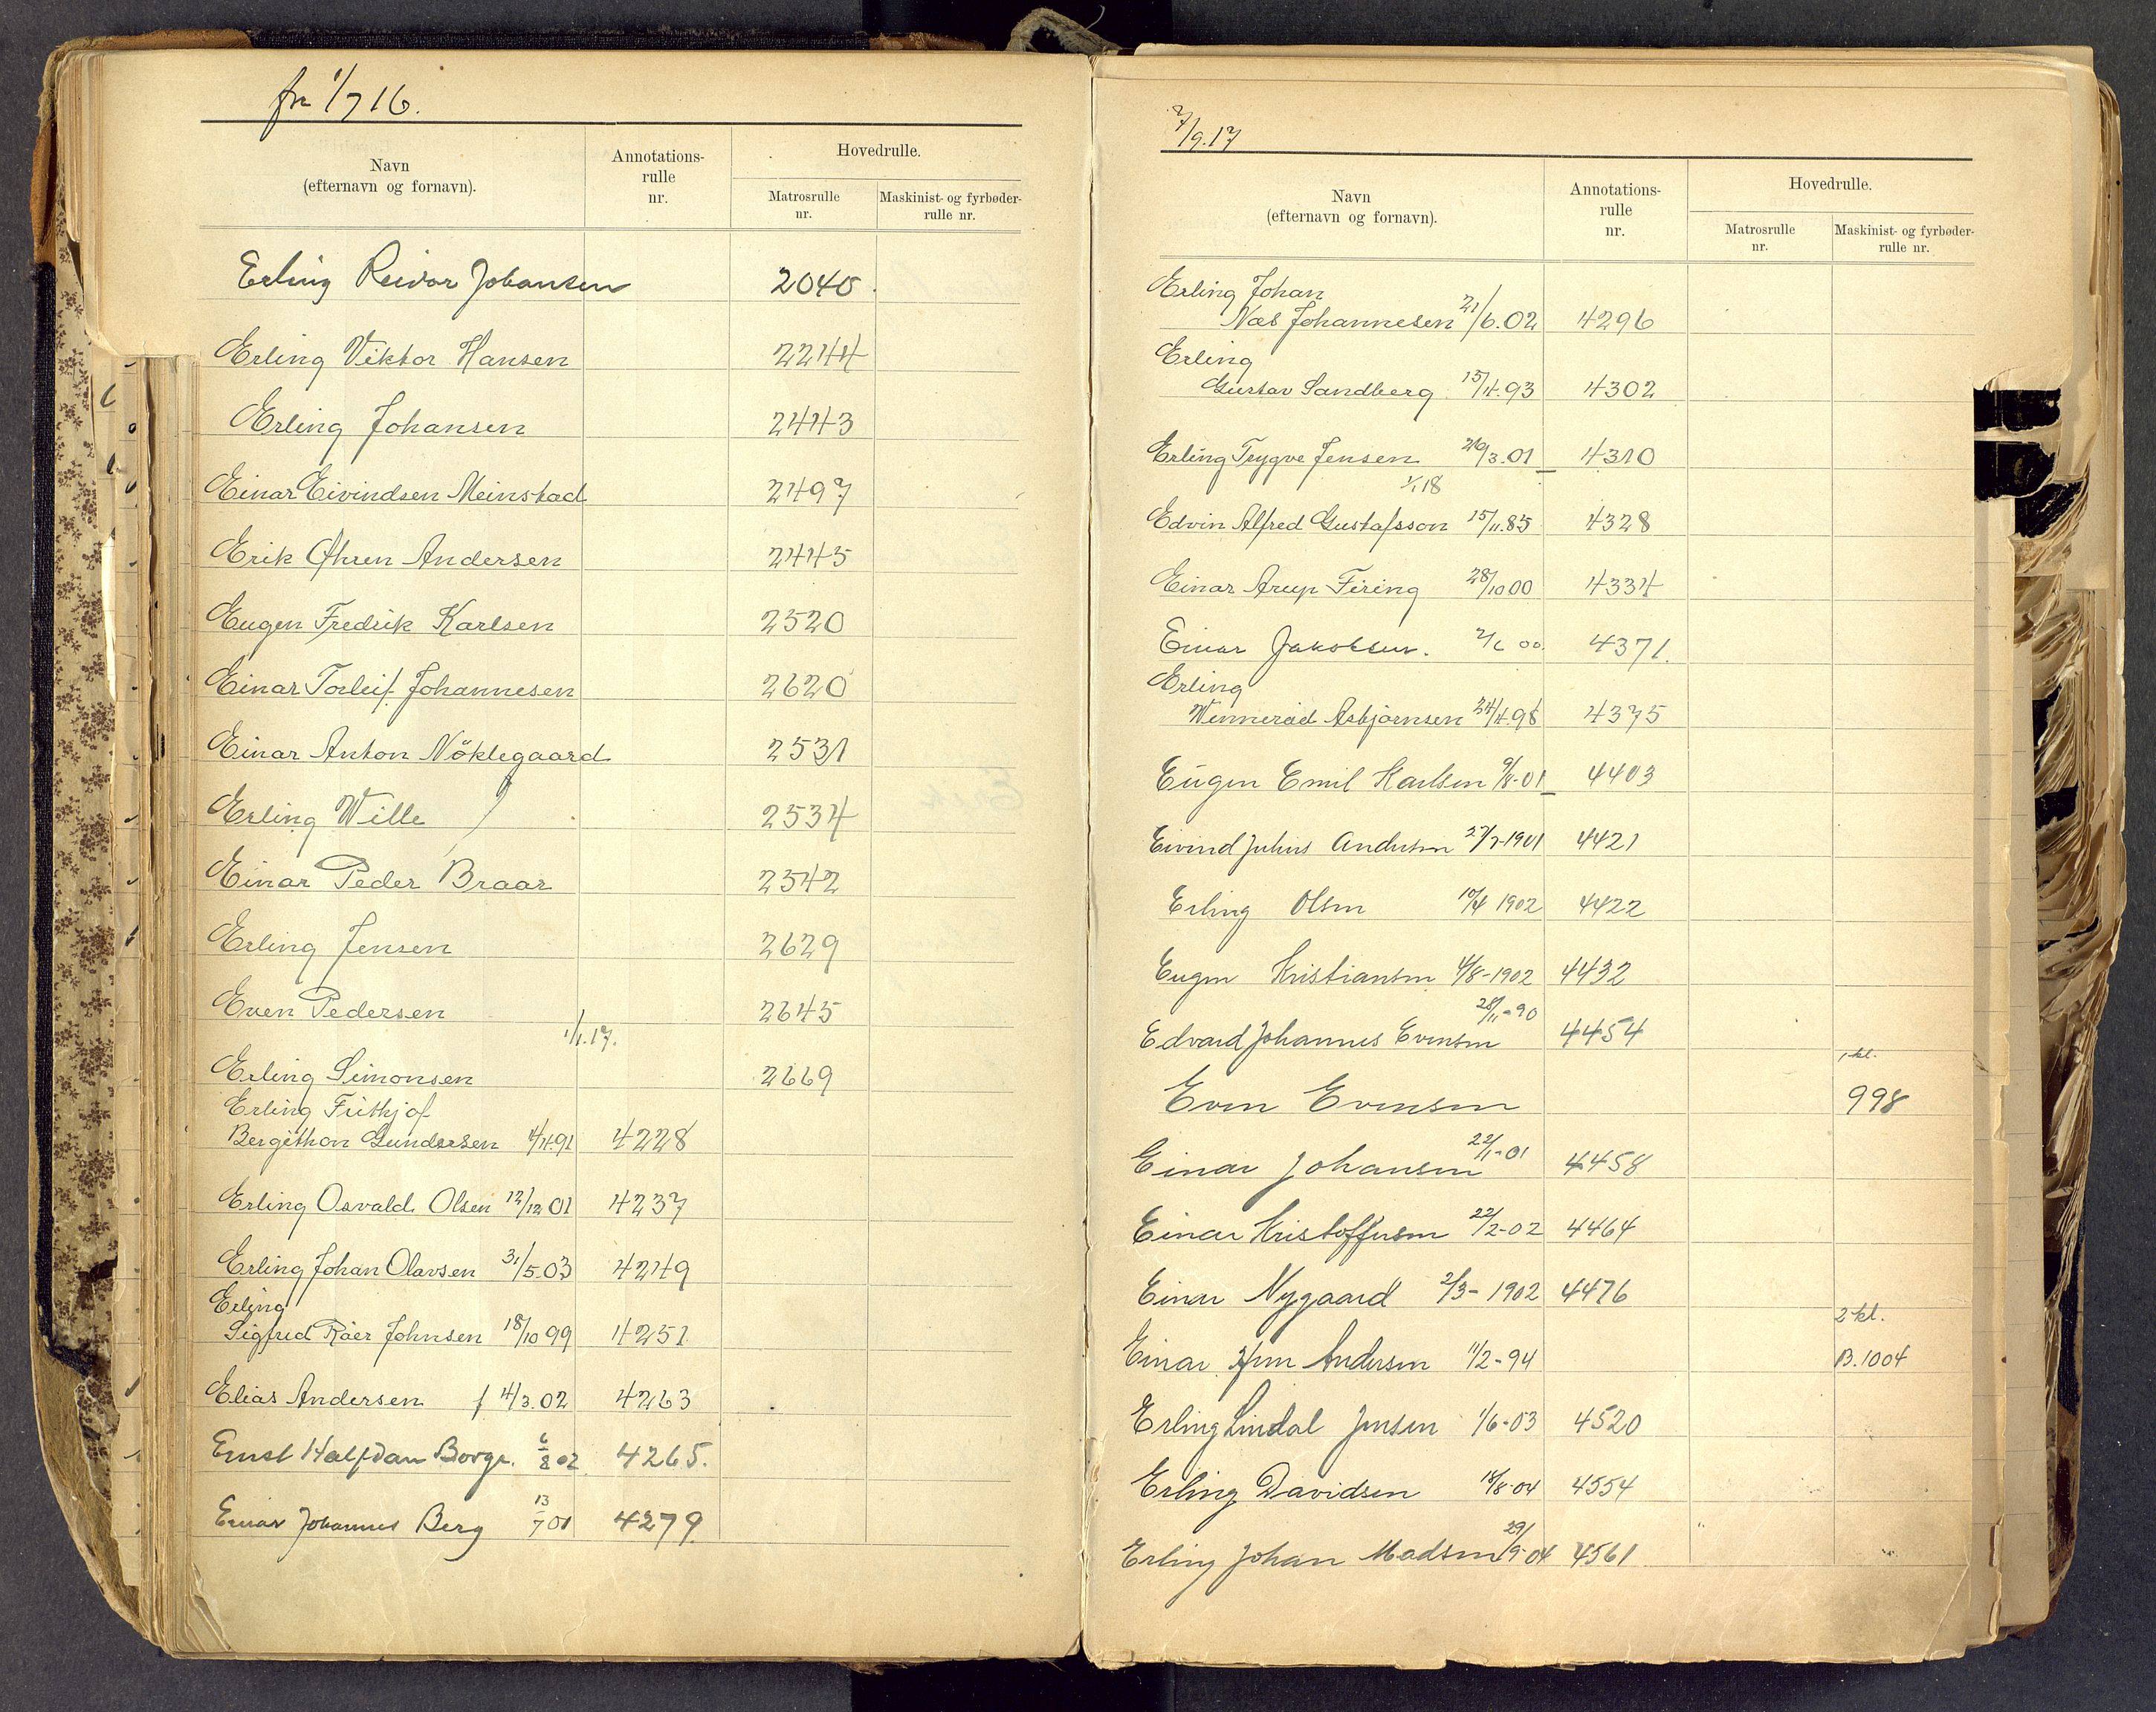 fra 1/7 16.
Hovedrulle.
Navn
(efternavn og fornavn).
Annotations-
rulle
nr.
Matrosrulle
nr.
Maskinist- og fyrbøder-
rulle nr.
Erling Reidar Johansen 2040
Erling Viktor Hansen 2244
Erling Johansen 2443
Einar Eivindsen Meinstad 2497
Erik Øhren Andersen 2445
Eugen Fredrik Karlsen 2520
Einar Torleif Johannesen 2620
Einar Anton Nöklegaard 2531
Erling Wille 2534
Einar Peder Braar 2542
Erling Jensen 2629
Even Pedersen 2645
1/1.17.
Erling Simonsen 2669
Erling Frithjof
Bergithon Gundersen 4/4.91 4228
Erling Osvald Olsen 12/12 01 4237
Erling Johan Olavsen 31/5.03 4249
Erling
Sigfred Røer Johnsen 18/10 99 4251
Elias Andersen f 4/3.02 4263
Ernst Halfdan Borge. 6/8 02 4265.
Einar Johannes Berg 13/7 01 4279.
7/9.17
Hovedrulle.
Navn
(efternavn og fornavn).
Annotations-
rulle
nr.
Matrosrulle
nr.
Maskinist- og fyrbøder-
rulle nr.
Erling Johan
Næs Johannesen 21/6.02 4296
Erling
Gustav Sandberg 15/4.93 4302
Erling Trygve Jensen 26/3.01 4310
1/1 18
Edvin Alfred Gustafsson 15/11.85 4328
Einar Arup Firing 28/10 00 4334
Einar Jakobsen. 2/6 00. 4371.
Erling
Wennerød Asbjørnsen 24/4.98 4375
Eugen Emil Karlsen 9/8-01 4403
Eivind Julius Andersen 27/7-1901 4421
Erling Olsen 10/4 1902 4422
Eugen Kristiansen 4/8-1902 4432
28/11-90
Edvard Johannes Evensen 4454
1 kl.
Even Evensen 998
Einar Johansen 22/1-01 4458
Einar Kristoffersen 22/2-02 4464
Einar Nygaard 2/3-1902 4476
2 kl.
Einar Andersen 11/2-94 B.1004
Erling Lindal Jensen 1/6-03 4520
Erling Davidsen 18/8-04 4554
Erling Johan Madsen 29/9-04 4561